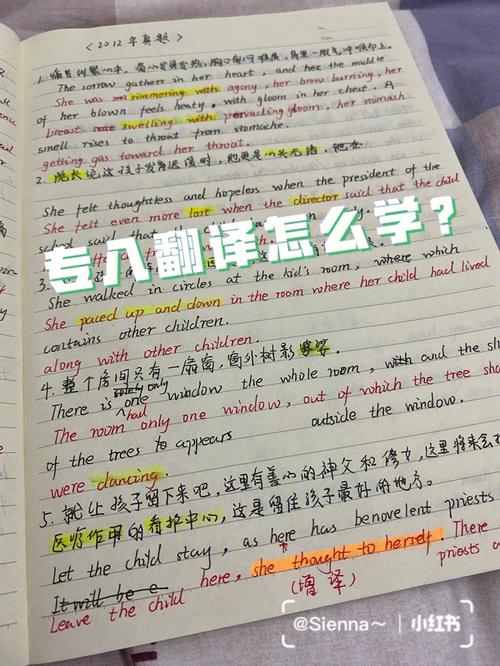 <2012年真题>
The sorrow gathers in her heart, and her the middle
She was simmering with agony, her brow burning, her
of her blown feels heaty, with gloom in her chest. A
breast swelling with gloom, her stomach
smell rises to throat from stomache.
getting gas toward her throat.
2. 院长说这孩子发育迟缓时，她更是一头茫绪，
She felt thoughtless and hopeless when the president of the
She felt even more lost when the director said that the child
专八翻译怎么学？
3.
She walked in circles at the kid's room, where which
She paced up and down in the room where her child had lived
contains other children.
along with other children.
4. 整个房间只有一扇窗，窗外树影婆娑。
There is only one window the whole room, with and the sh
The room had only one window, out of which the tree sha
of the trees to appears outside the window.
were dancing.
5. 就让孩子留下来吧，这里有善心的神父和修女，这里将来会
医疗作用的看护中心，这是留住孩子最好的地方。
Let the child stay, as here has benovelent priests
It will be a
Leave the child here, she thought to herself. There
priests a
(增译)
@Sienna～ 小红书